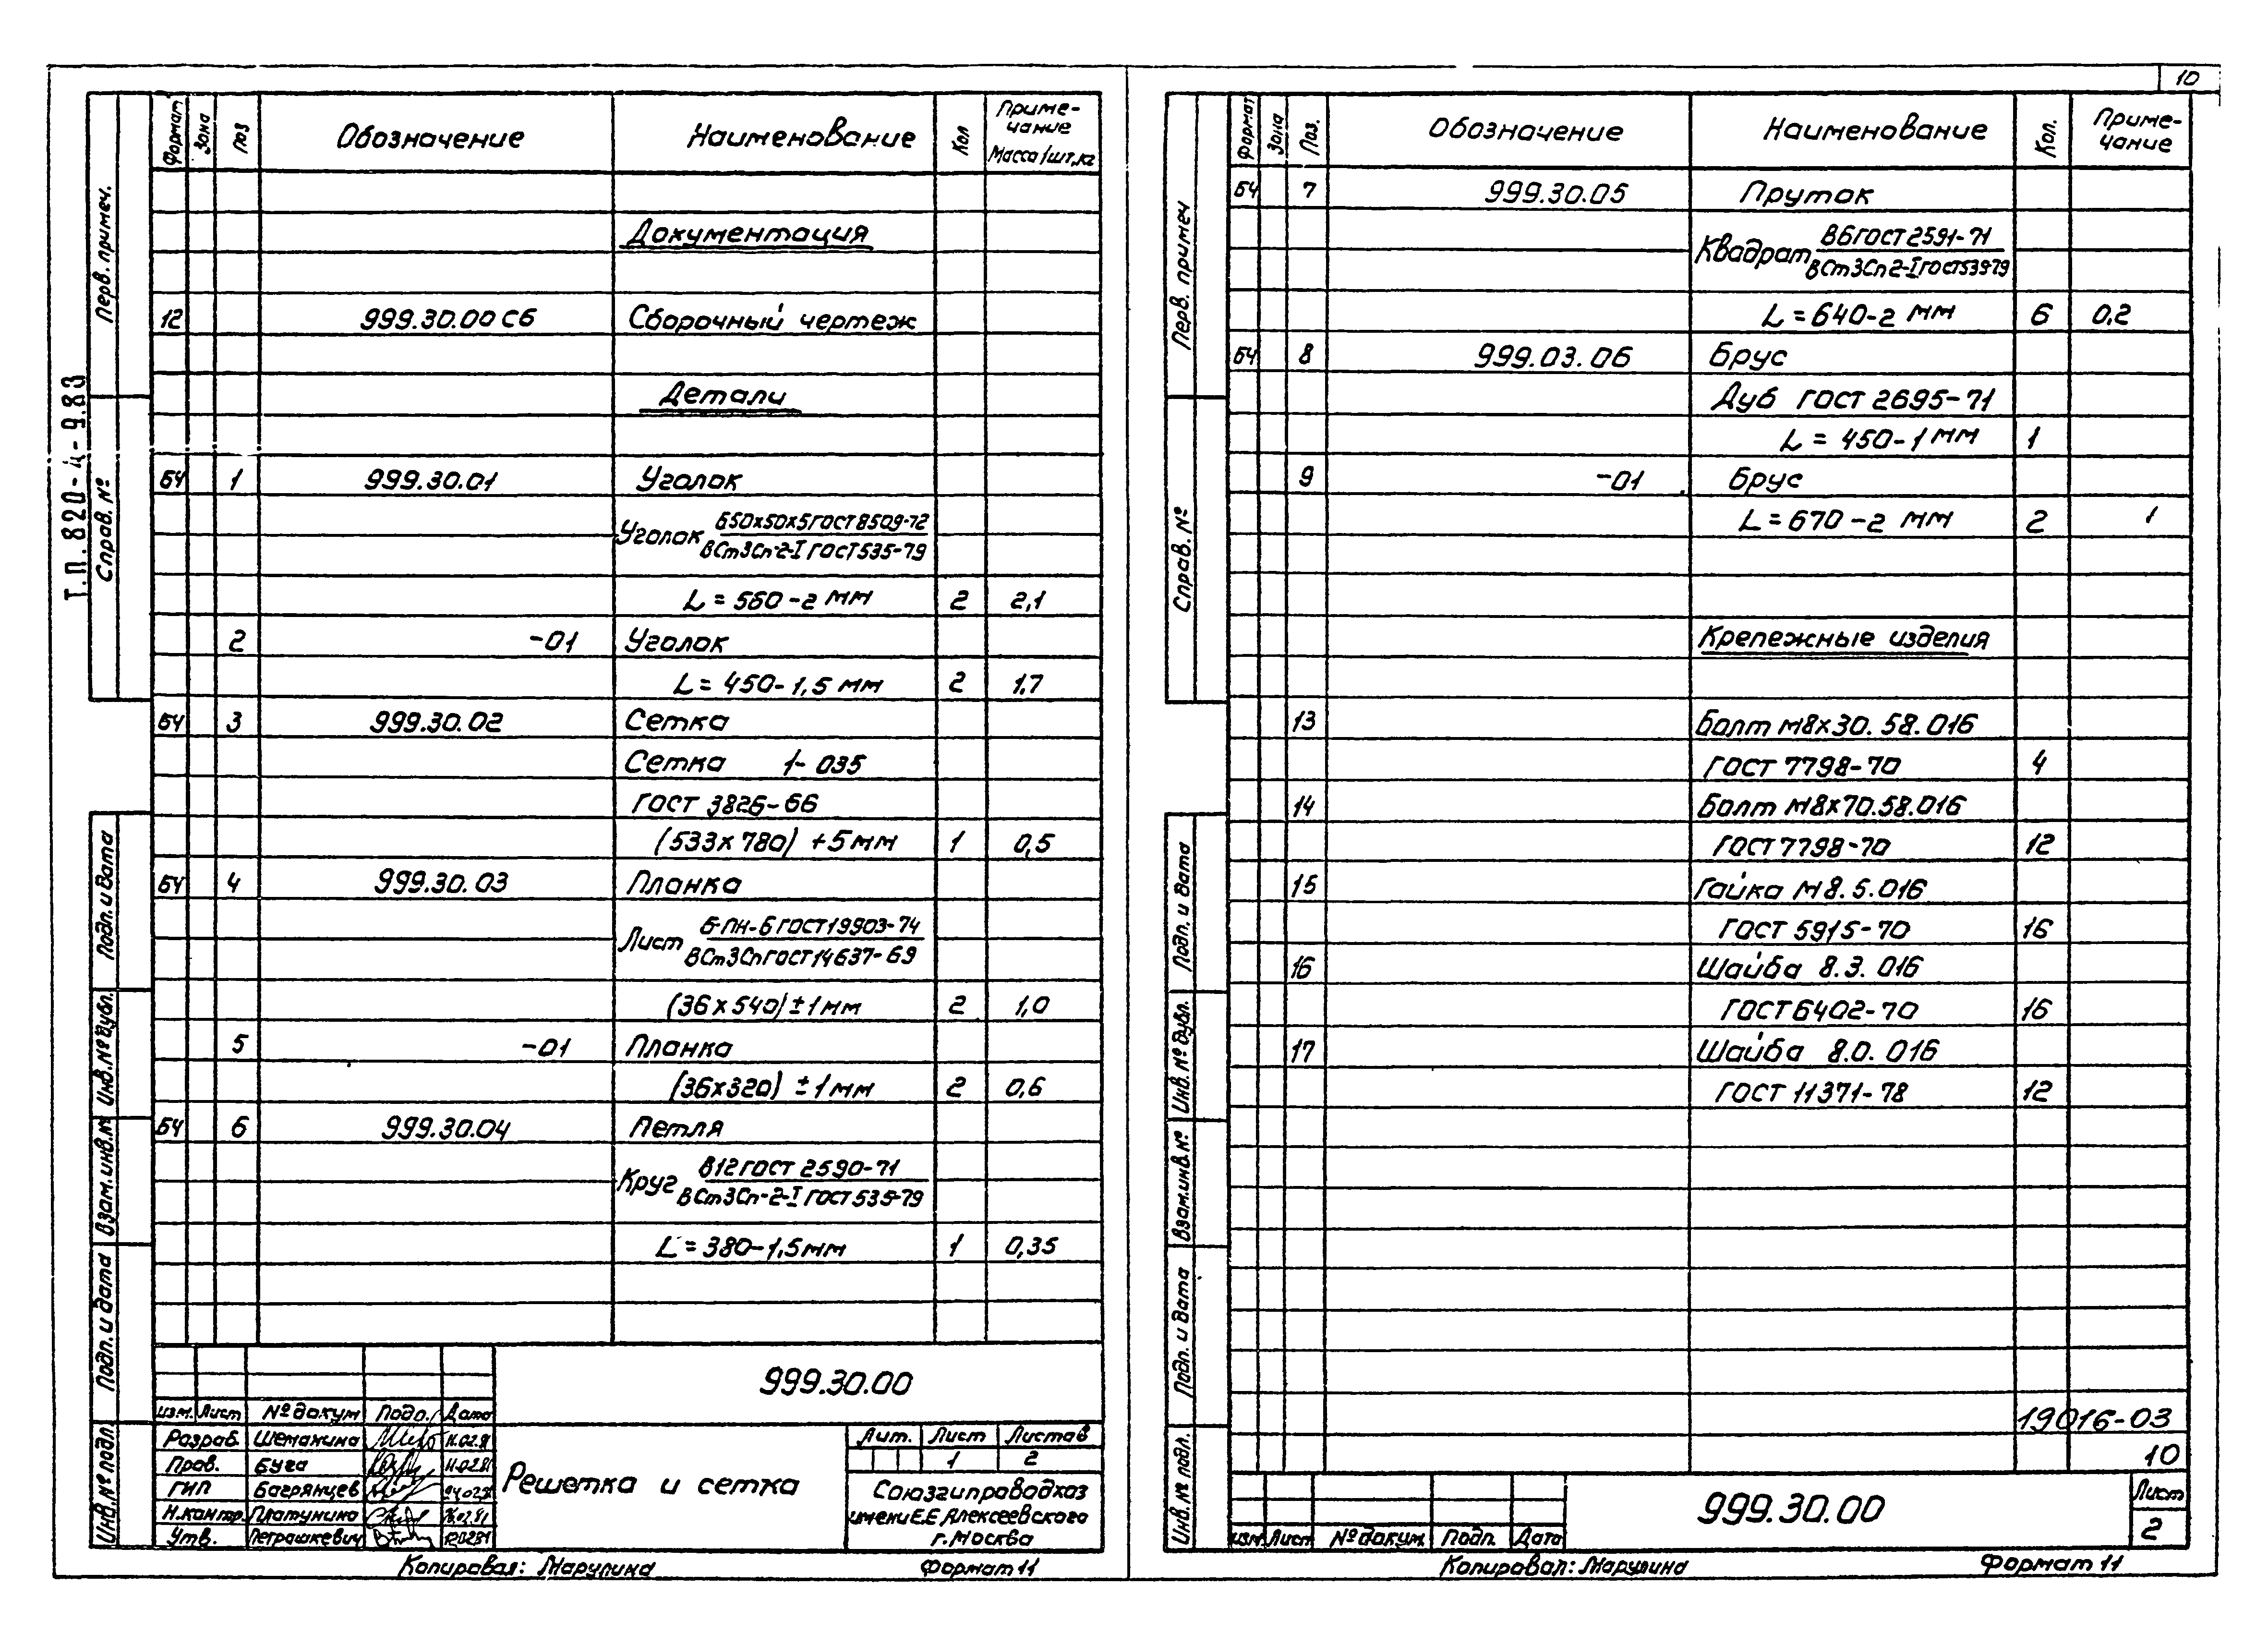 10
Т.П. 820-4-9.83
Перв. примеч.
Справ. №
Подп. и дата
Инв. № дубл.
Взам. инв. №
Подп. и дата
Инв. № подл.
Формат Зона Поз Обозначение Наименование Кол Приме-
чание
Масса/шт, кг
Документация
12 999.30.00 СБ Сборочный чертеж
Детали
БЧ 1 999.30.01 Уголок
Уголок Б50х50х5 ГОСТ 8509-72
ВСт3Сп-2-I ГОСТ 535-79
L = 560-2 мм 2 2,1
2 -01 Уголок
L = 450-1,5 мм 2 1.7
БЧ 3 999.30.02 Сетка
Сетка 1-035
ГОСТ 3826-66
(533х780) +5 мм 1 0,5
БЧ 4 999.30.03 Планка
Лист Б-ПН-6 ГОСТ 19903-74
ВСт3Сп ГОСТ 14637-69
(36х540) ±1 мм 2 1,0
5 -01 Планка
(36х320) ±1 мм 2 0,6
БЧ 6 999.30.04 Петля
Круг В12 ГОСТ 2590-71
ВСт3Сп-2-I ГОСТ 535-79
L = 380-1,5 мм 1 0,35
999.30.00
Изм. Лист № докум Подп. Дата
Разраб. Шеманина 11.02.81
Пров. Буга 11.02.81
ГИП Багрянцев
Н.контр. Платунина
Утв. Петрашкевич
Решетка и сетка
Лит. Лист Листов
1 2
Союзгипроводхоз
имени Е.Е. Алексеевского
г. Москва
Копировал: Марулина Формат 11
Перв. примеч
Справ. №
Подп. и дата
Инв. № дубл.
Взам. инв. №
Подп. и дата
Инв. № подл.
Формат Зона Поз. Обозначение Наименование Кол. Приме-
чание
БЧ 7 999.30.05 Пруток
Квадрат В6 ГОСТ 2591-71
ВСт3Сп2-I ГОСТ 535-79
L = 640-2 мм 6 0,2
БЧ 8 999.03.06 Брус
Дуб ГОСТ 2695-71
L = 450-1 мм 1
9 -01 Брус
L = 670-2 мм 2
Крепежные изделия
13 Болт М8х30. 58. 016
ГОСТ 7798-70 4
14 Болт М8х70.58.016
ГОСТ 7798-70 12
15 Гайка М8. 5. 016
ГОСТ 5915-70 16
16 Шайба 8. 3. 016
ГОСТ 6402-70 16
17 Шайба 8.0. 016
ГОСТ 11371-78 12
19016-03
10
999.30.00
Лист
2
Изм. Лист № докум. Подп. Дата
Копировал: Марулина Формат 11